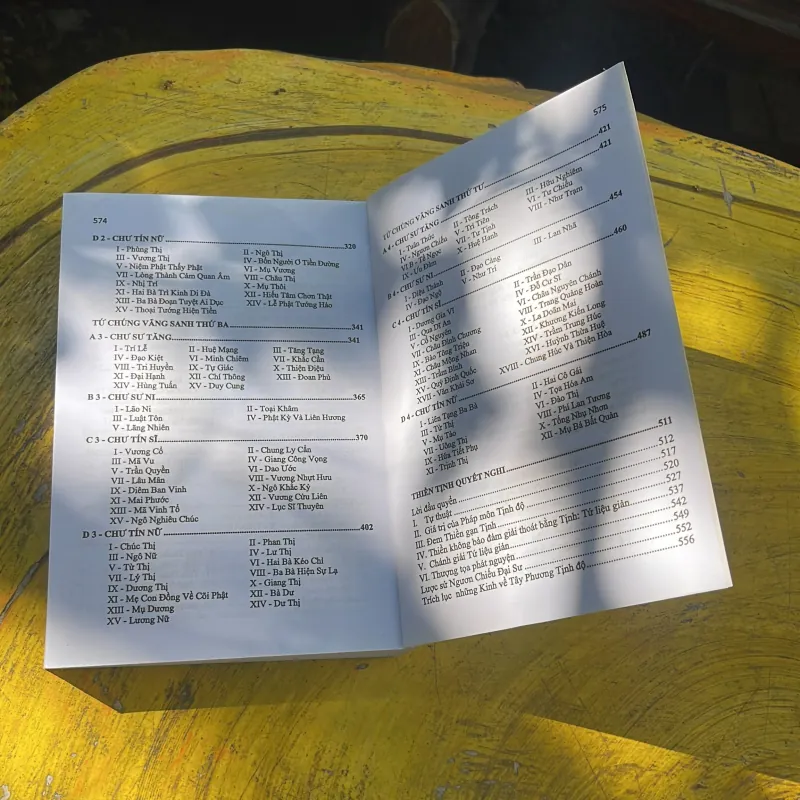 574
D 2 - CHƯ TÍN NỮ ........ 320
I - Phùng Thị II - Ngô Thị
III - Vương Thị IV - Bốn Người Ở Tiền Đường
V - Niệm Phật Thấy Phật VI - Mụ Vương
VII - Lòng Thành Cảm Quan Âm VIII - Châu Thị
IX - Nhị Trí X - Mụ Thôi
XI - Hai Bà Trì Kinh Di Đà XII - Hiểu Tâm Chơn Thật
XIII - Ba Bà Đoạn Tuyệt Ái Dục XIV - Lễ Phật Tưởng Hảo
XV - Thoại Tướng Hiện Tiền
TỨ CHÚNG VÃNG SANH THỨ BA ........ 341
A 3 - CHƯ SƯ TĂNG ........ 341
I - Trí Lễ II - Huệ Mạng III - Tăng Tạng
IV - Đạo Kiệt VI - Minh Chiêm VII - Khắc Cần
VIII - Tri Huyền IX - Tự Giác X - Thiện Điệu
XI - Đại Hạnh XII - Chí Thông XIII - Đoan Phủ
XIV - Hùng Tuấn XV - Duy Cung
B 3 - CHƯ SƯ NI ........ 365
I - Lão Ni II - Toại Khâm
III - Luật Tôn IV - Phật Kỳ Và Liên Hương
V - Lăng Nhiên
C 3 - CHƯ TÍN SĨ ........ 370
I - Vương Cổ II - Chung Ly Cẩn
III - Mã Vu IV - Giang Công Vọng
V - Trần Quyền VI - Dao Ước
VII - Lâu Mân VIII - Vương Nhựt Hưu
IX - Diêm Ban Vinh X - Ngô Khắc Kỷ
XI - Mai Phước XII - Vương Cửu Liên
XIII - Mã Vinh Tổ XIV - Lục Sĩ Thuyên
XV - Ngô Nghiêu Chúc
D 3 - CHƯ TÍN NỮ ........ 402
I - Chúc Thị II - Phan Thị
III - Ngô Nữ IV - Lư Thị
V - Từ Thị VI - Hai Bà Kéo Chỉ
VII - Lý Thị VIII - Ba Bà Hiện Sự Lạ
IX - Dương Thị X - Giang Thị
XI - Mẹ Con Đồng Về Cõi Phật XII - Bà Dư
XIII - Mụ Dương XIV - Dư Thị
XV - Lương Nữ
575
TỨ CHÚNG VÃNG SANH THỨ TƯ ........ 421
A 4 - CHƯ SƯ TĂNG ........ 421
I - Tuân Thức II - Tông Trách III - Hữu Nghiêm
IV - Ngươn Chiếu V - Trí Tiên VI - Tư Chiếu
VI B - Tề Ngọc VII - Tự Tịnh VIII - Như Trạm
IX - Ưu Đàm X - Huệ Hanh
B 4 - CHƯ SƯ NI ........ 454
I - Diệu Thánh II - Đạo Càng III - Lan Nhã
IV - Đạc Ngô V - Như Trí
C 4 - CHƯ TÍN SĨ ........ 460
I - Dương Gia Vi II - Trần Đạo Dân
III - Qua Dĩ An IV - Đỗ Cư Sĩ
V - Cố Nguyên VI - Châu Nguyên Chánh
VII - Châu Đình Chương VIII - Trang Quảng Hoàn
IX - Bào Tông Triệu X - La Doãn Mai
XI - Châu Mộng Nhan XII - Khương Kiến Long
XIII - Trầm Bỉnh XIV - Trầm Trung Húc
XV - Quý Đình Quốc XVI - Huỳnh Thừa Huệ
XVII - Vân Khái Sơ XVIII - Chung Húc Và Thiện Hòa
D 4 - CHƯ TÍN NỮ ........ 487
I - Liên Tạng Ba Bà II - Hai Cô Gái
III - Từ Thị IV - Tọa Hóa Am
V - Mụ Tảo VI - Đào Thị
VII - Uông Thị VIII - Phí Lan Tương
IX - Hứa Tiết Phụ X - Tống Nhụ Nhơn
XI - Trịnh Thị XII - Mụ Bá Bất Quản
THIỀN TỊNH QUYẾT NGHI ........ 511
Lời đầu quyển ........ 512
I. Tự thuật ........ 517
II. Giá trị của Pháp môn Tịnh độ ........ 520
III. Đem Thiền gạn Tịnh ........ 527
IV. Thiền không bảo đảm giải thoát bằng Tịnh: Tứ liệu giản ........ 537
V. Chánh giải Tứ liệu giản ........ 542
VI. Thượng tọa phát nguyện ........ 549
Lược sử Ngươn Chiếu Đại Sư ........ 552
Trích lục những Kinh về Tây Phương Tịnh độ ........ 556